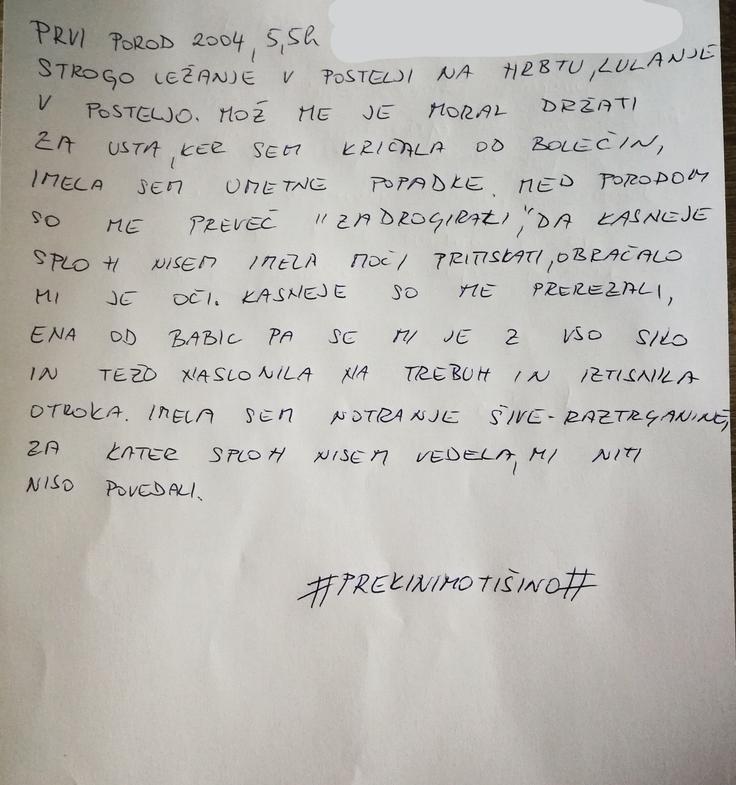 PRVI POROD 2004, 5,5h
STROGO LEŽANJE V POSTELJI NA HRBTU, LULANJE
V POSTELJO. MOŽ ME JE MORAL DRŽATI
ZA USTA, KER SEM KRIČALA OD BOLEČIN,
IMELA SEM UMETNE POPADKE. MED PORODOM
SO ME PREVEČ "ZADROGIRALI", DA KASNEJE
SPLOH NISEM IMELA MOČI PRITISKATI, OBRAČALO
MI JE OČI. KASNEJE SO ME PREREZALI,
ENA OD BABIC PA SE MI JE Z VSO SILO
IN TEŽO NASLONILA NA TREBUH IN IZTISNILA
OTROKA. IMELA SEM NOTRANJE ŠIVE-RAZTRGANINE,
ZA KATER SPLOH NISEM VEDELA, MI NITI
NISO POVEDALI.
#PREKINIMOTIŠINO#